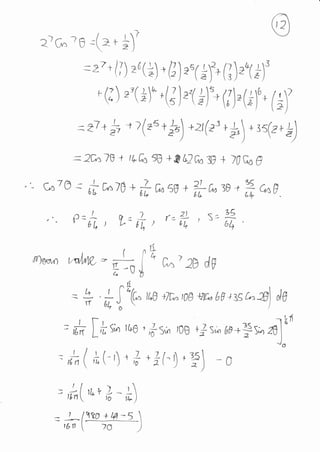 12
2⁷ Cos ⁷θ = (z + 1/z)⁷
= z⁷ + (7 1) z⁶(1/z) + (7 2) z⁵(1/z)² + (7 3) z⁴(1/z)³
+ (7 4) z³(1/z)⁴ + (7 5) z²(1/z)⁵ + (7 6) z(1/z)⁶ + (1/z)⁷
= z⁷ + 1/z⁷ + 7(z⁵ + 1/z⁵) + 21(z³ + 1/z³) + 35(z + 1/z)
= 2Cos 7θ + 14 Cos 5θ + 42 Cos 3θ + 70 Cos θ
∴ Cos⁷θ = 1/64 Cos 7θ + 7/64 Cos 5θ + 21/64 Cos 3θ + 35/64 Cos θ.
∴ p = 1/64 , q = 7/64 , r = 21/64 , s = 35/64 .
mean value = 1/(π/4 − 0) ∫₀^(π/4) Cos ⁷ 2θ dθ
= 4/π · 1/64 ∫₀^(π/4) (Cos 14θ + 7Cos 10θ + 21Cos 6θ + 35 Cos 2θ) dθ
= 1/16π [1/14 Sin 14θ + 7/10 Sin 10θ + 7/2 Sin 6θ + 35/2 Sin 2θ]₀^(¼π)
= 1/16π ( 1/14 (−1) + 7/10 + 7/2 (−1) + 35/2 ) − 0
= 1/16π ( 14 + 7/10 − 1/14 )
= 1/16π ( (980 + 49 − 5)/70 )